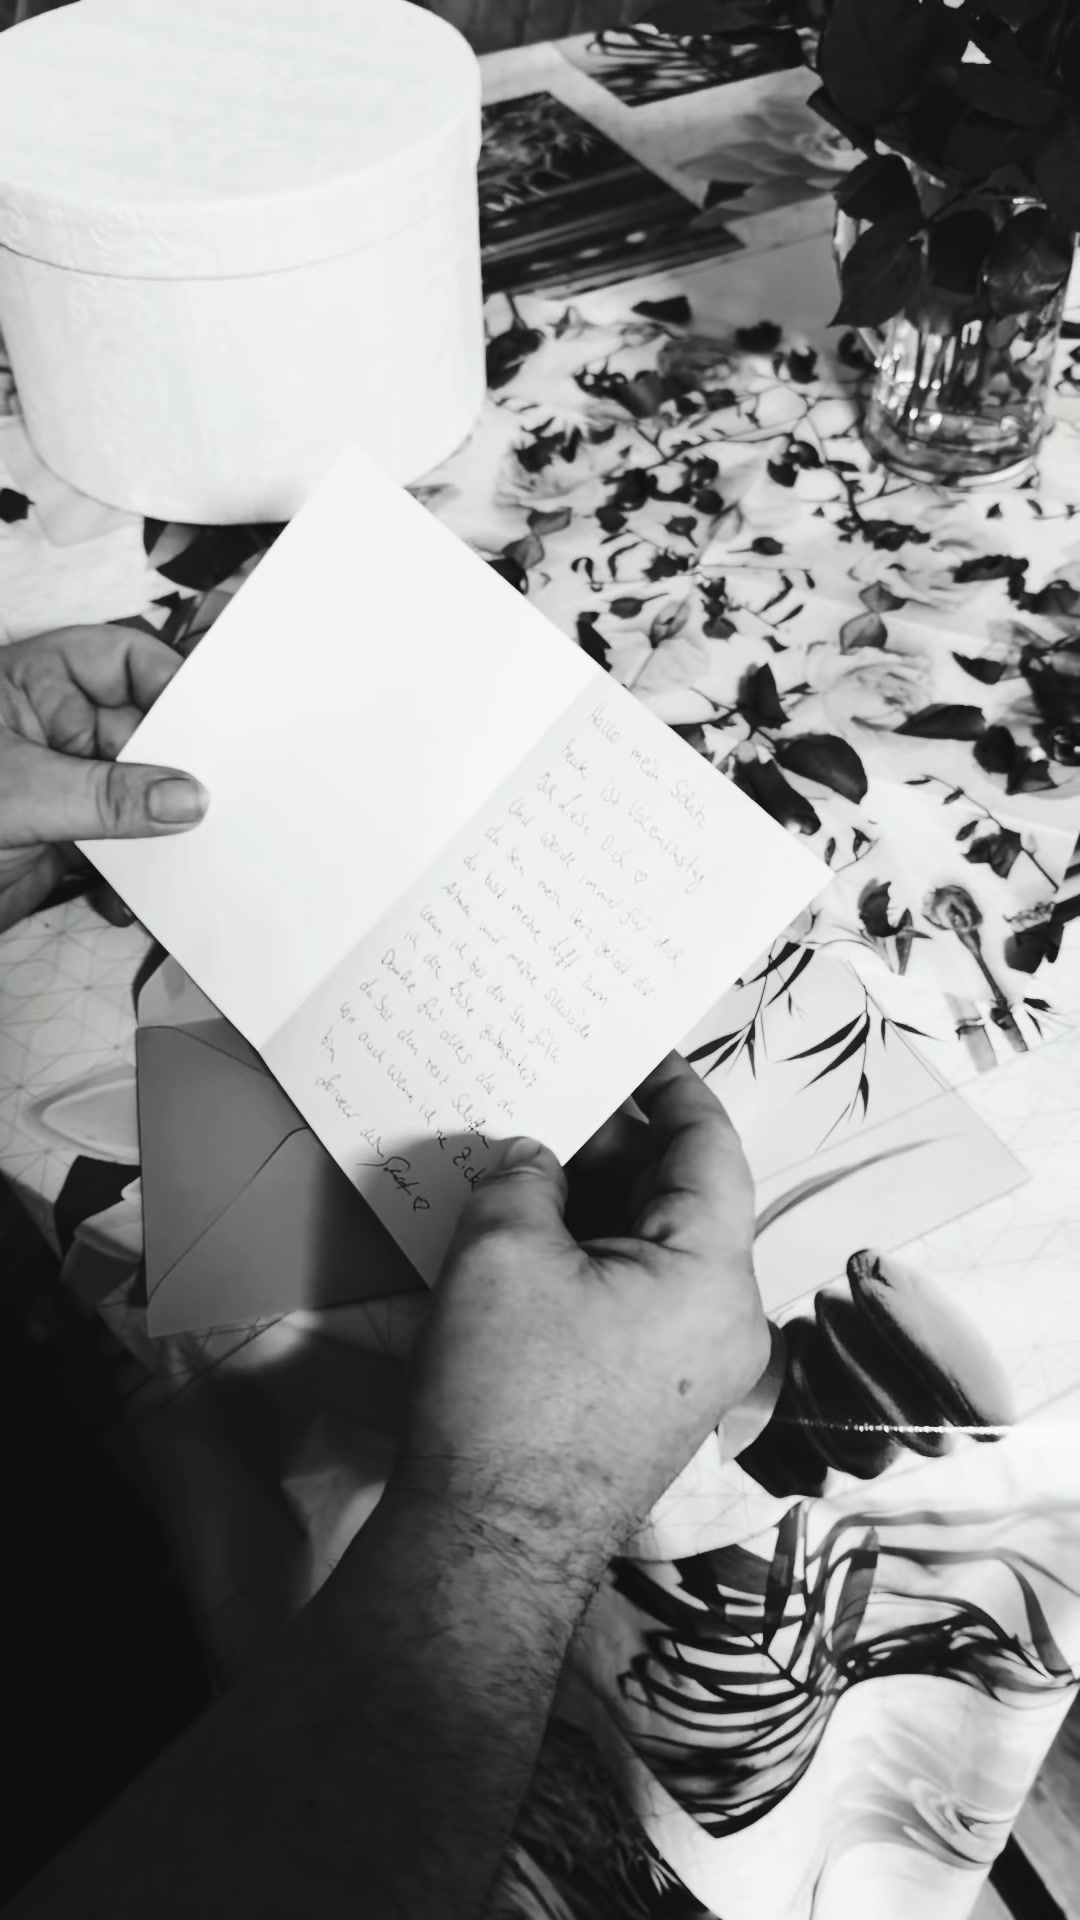 Hallo mein Schatz
heute ist Valentinstag
Ich liebe Dich ♡
und werde immer für dich
da sein mein Herz gehört dir
du bist meine Luft zum
Atmen und meine
wenn ich bei dir bin fühle
ich die Liebe
Danke für alles das du
du bist der rest
von auch wenn ich ne Zick
bin
dein Schatz ♡